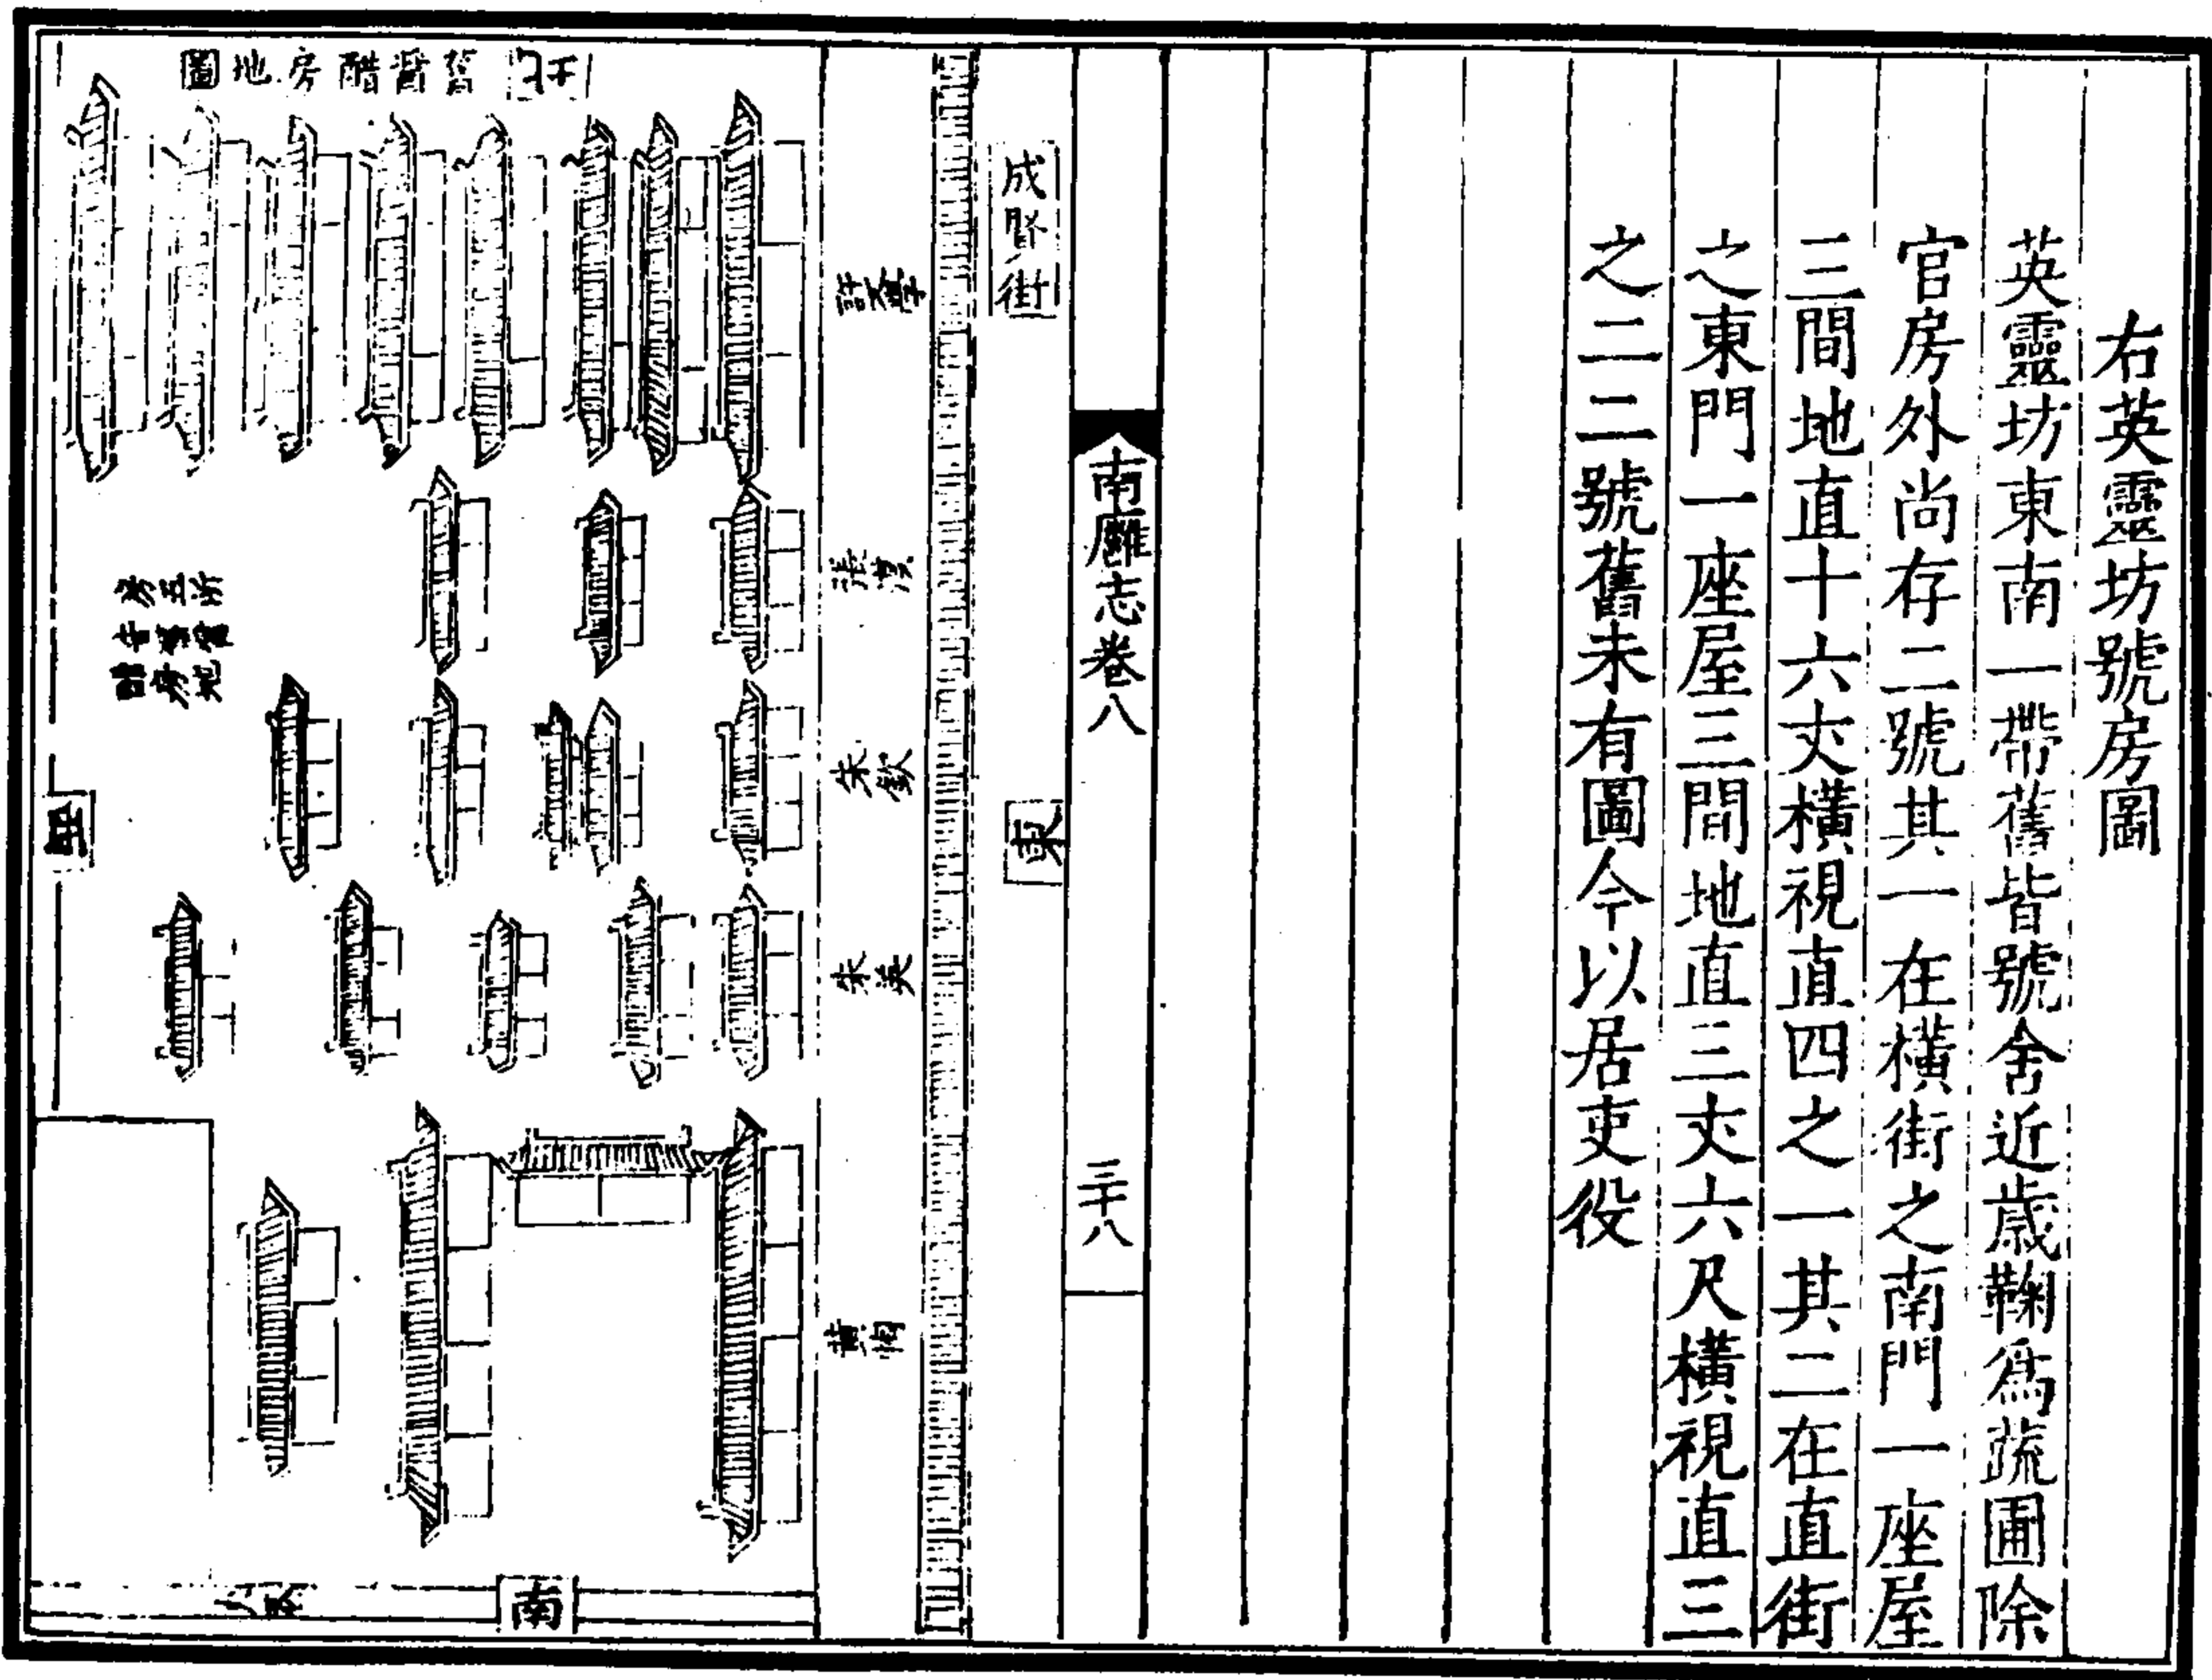 右英靈坊號房圖
英靈坊東南一帶舊皆號舍近歲鞠爲蔬圃除
官房外尚存二號其一在橫街之南門一座屋
三間地直十六丈橫視直四之一其二在直街
之東門一座屋三間地直三丈六尺橫視直三
之二二號舊未有圖今以居吏役
南廱志卷八
三十八
成賢街
東
朱欽
朱英
北
舊醬醋房地圖
南